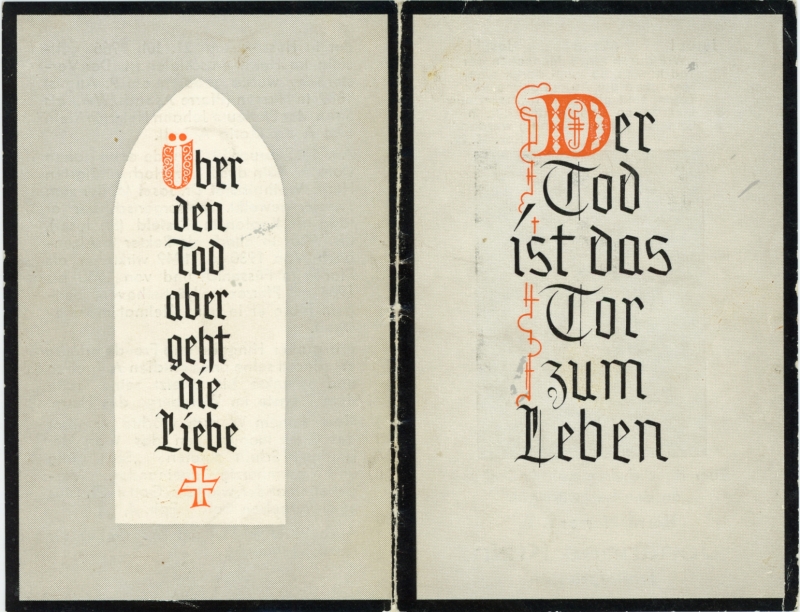 Über
den
Tod
aber
geht
die
Liebe
Der
Tod
ist das
Tor
zum
Leben